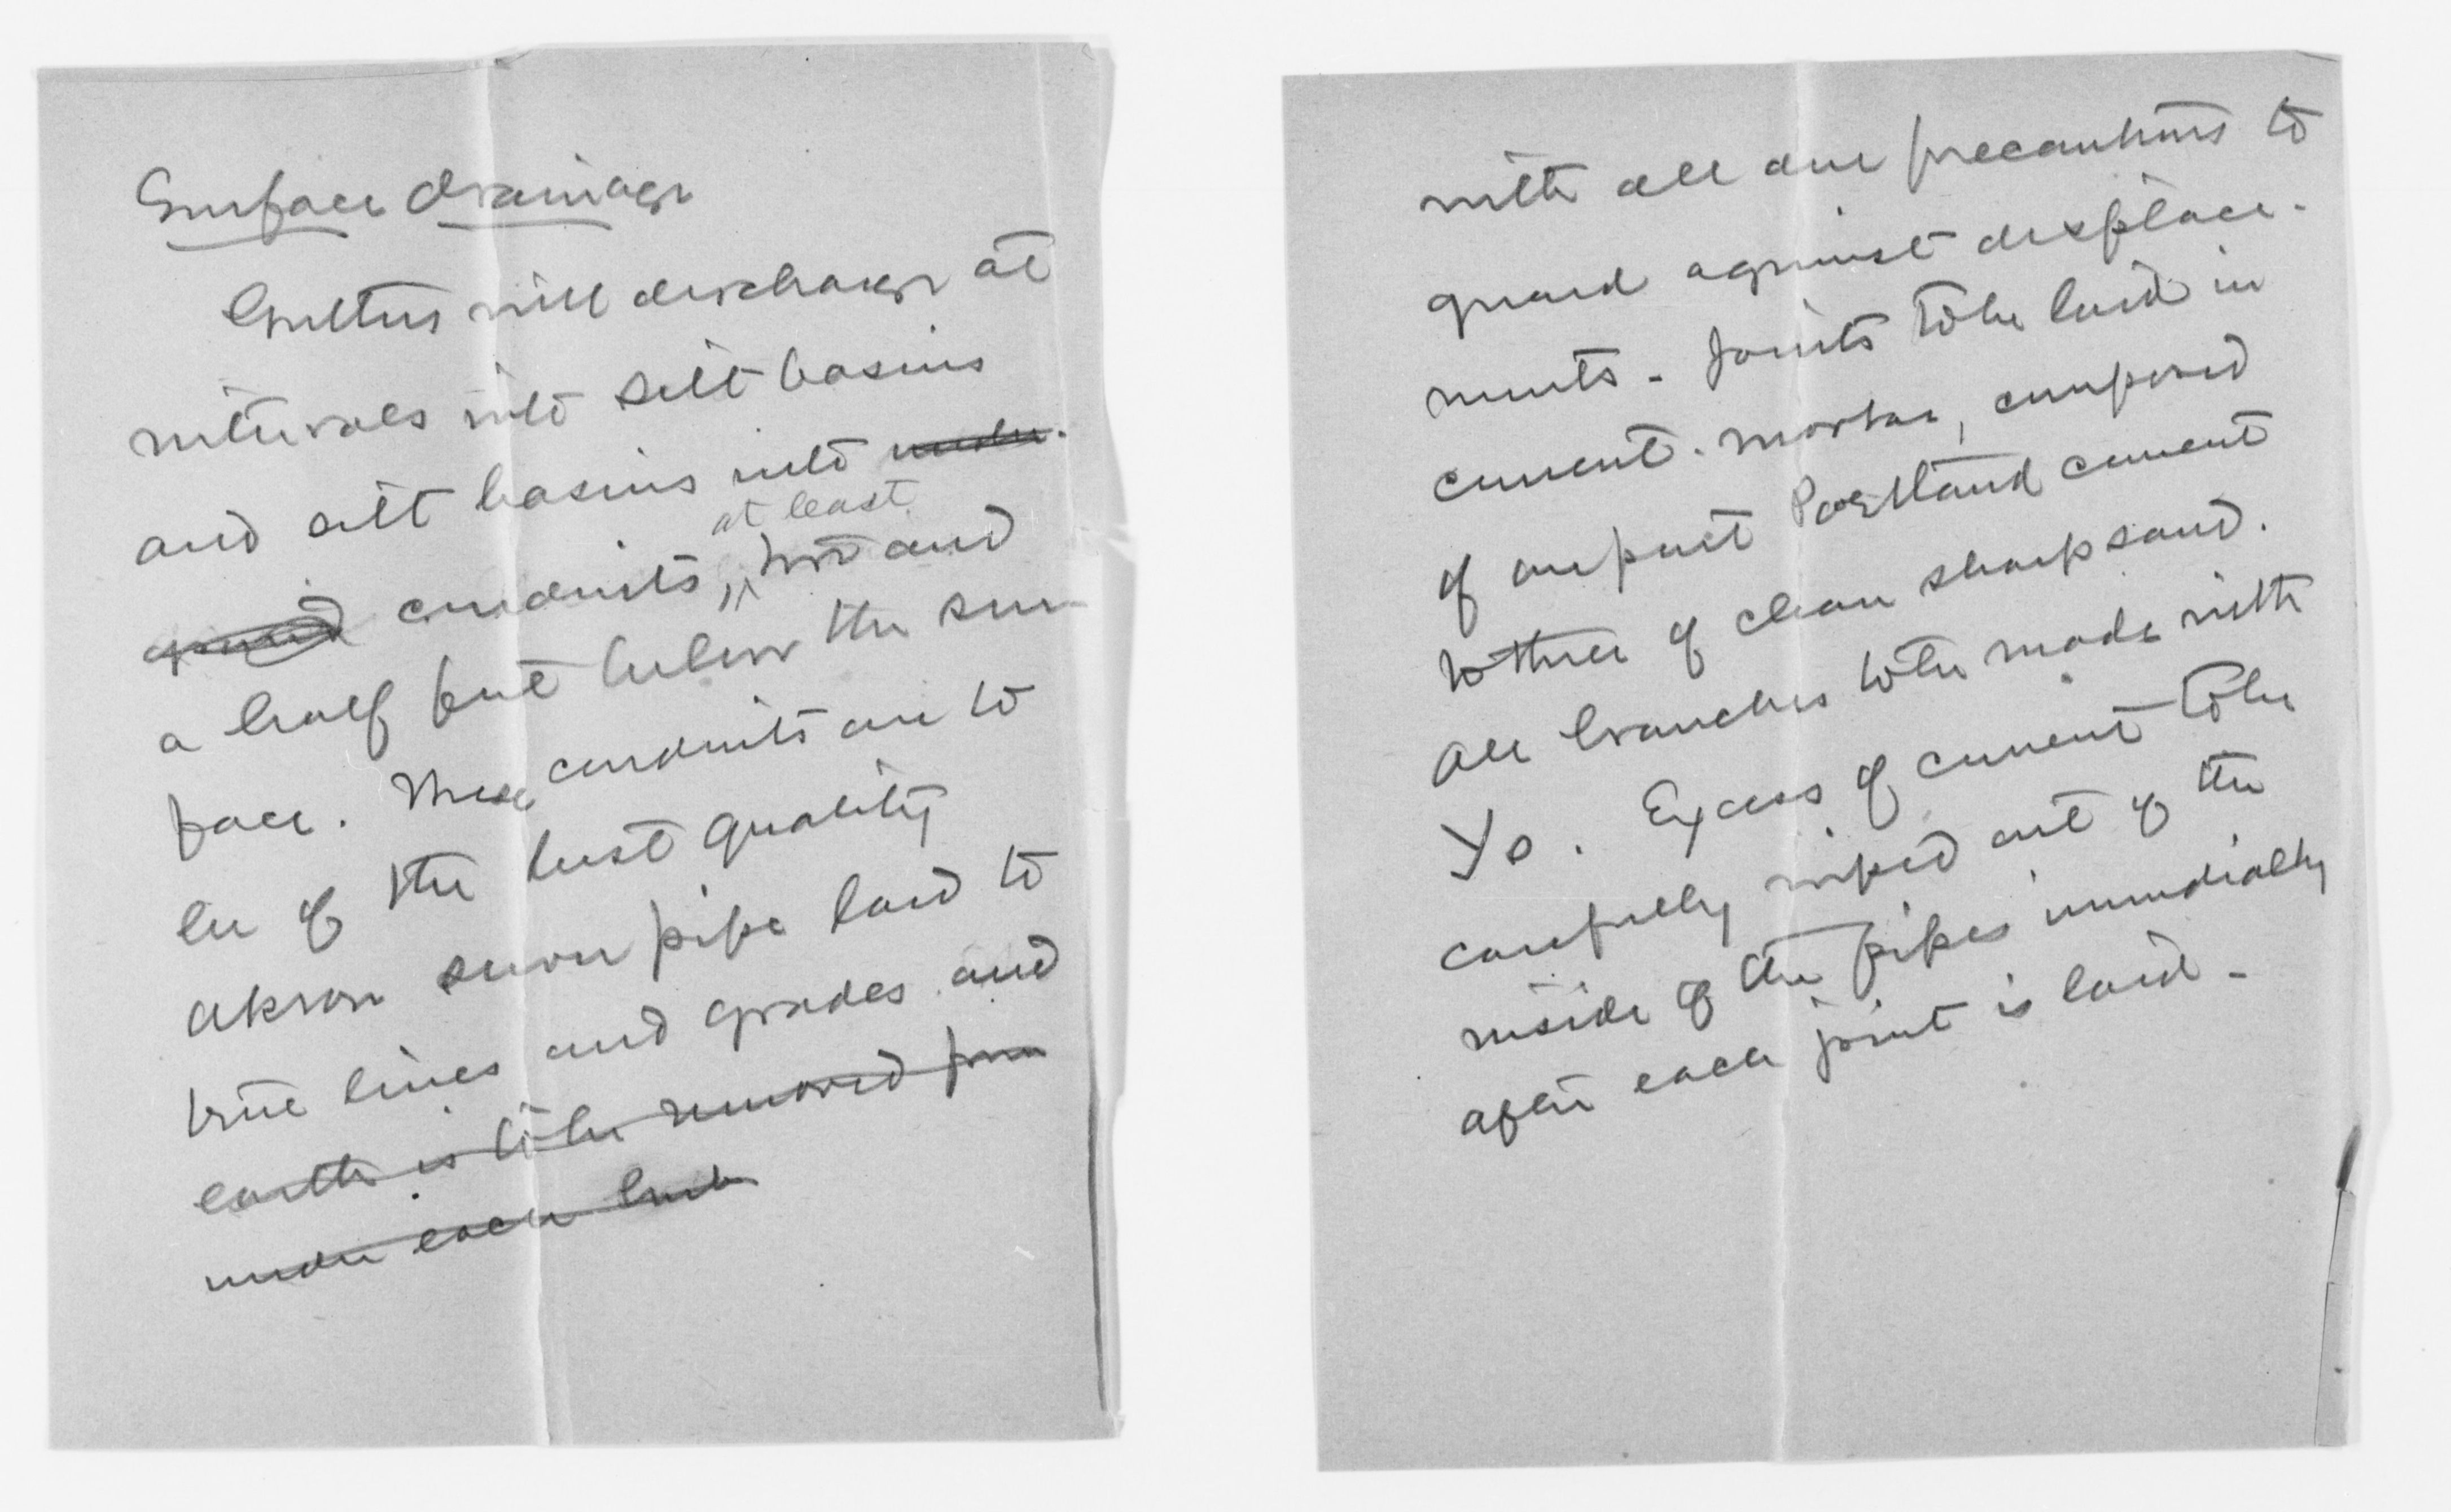 Surface drainage
Gutters will discharge at
intervals into silt basins
and silt basins into under-
ground conduits, at least two and
a half feet below the sur-
face. These conduits are to
be of the best quality
Akron sewer pipe laid to
true lines and grades and
earth is to be removed from
under each hub
with all due precautions to
guard against displace-
ments - Joints to be laid in
cement-mortar, composed
of one part Portland cement
to three of clean sharp sand.
All branches to be made with
Ys. Excess of cement to be
carefully wiped out of the
inside of the pipes immediatly
after each joint is laid -